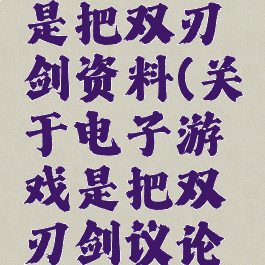 是把双刃
剑资料(关
于电子游
戏是把双
刃剑议论